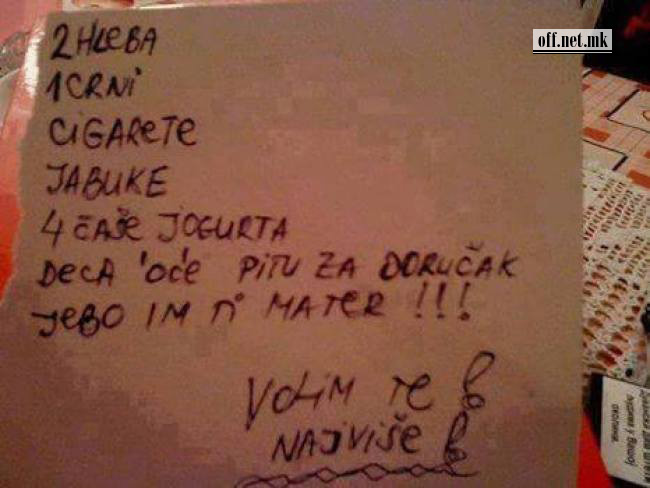 off.net.mk
2 HLEBA
1 CRNI
CIGARETE
JABUKE
4 ČAŠE JOGURTA
DECA 'OĆE PITU ZA DORUČAK
JEBO IM N° MATER !!!
VOLIM TE
NAJVIŠE
околина.